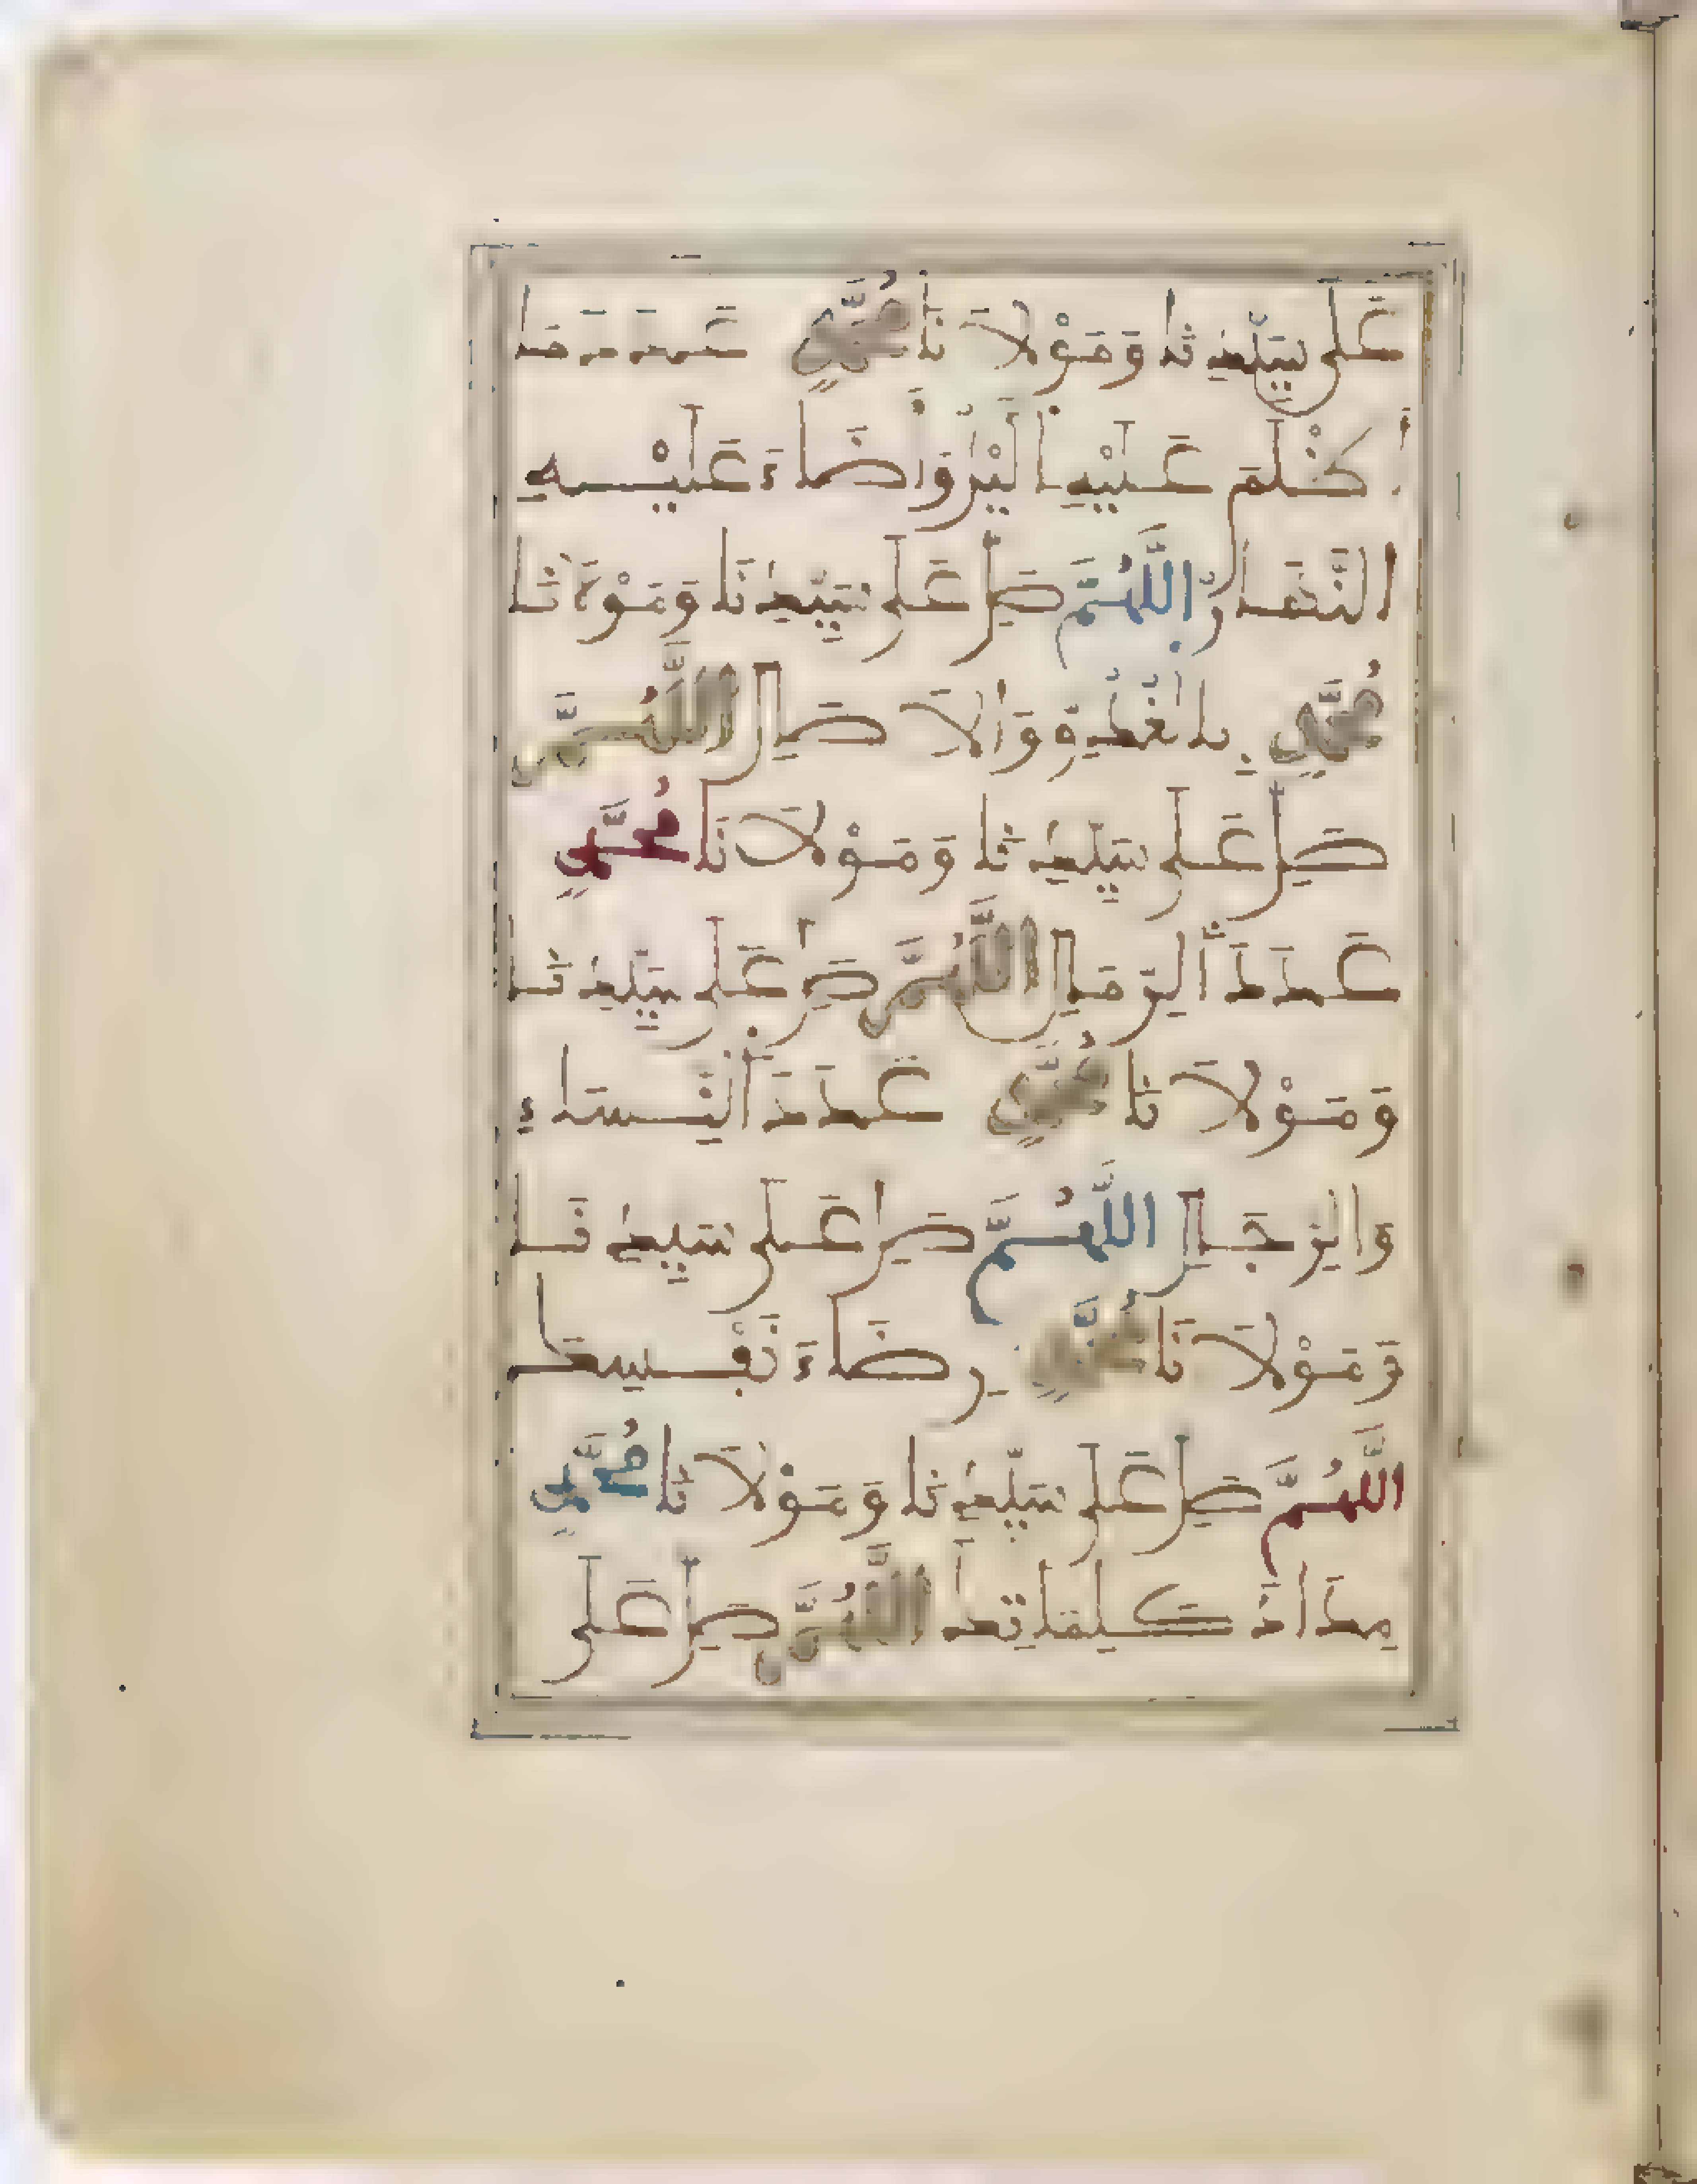 عَلَى سَيِّدِنَا وَمَوْلَانَا مُحَمَّدٍ عَدَدَ مَا
أَظْلَمَ عَلَيْهِ الَّيْلُ وَأَضَاءَ عَلَيْهِ
النَّهَارُ اللَّهُمَّ صَلِّ عَلَى سَيِّدِنَا وَمَوْلَانَا
مُحَمَّدٍ بِالْغُدُوِّ وَالْآصَالِ اللَّهُمَّ
صَلِّ عَلَى سَيِّدِنَا وَمَوْلَانَا مُحَمَّدٍ
عَدَدَ الرِّمَالِ اللَّهُمَّ صَلِّ عَلَى سَيِّدِنَا
وَمَوْلَانَا مُحَمَّدٍ عَدَدَ النِّسَاءِ
وَالرِّجَالِ اللَّهُمَّ صَلِّ عَلَى سَيِّدِنَا
وَمَوْلَانَا مُحَمَّدٍ رِضَاءَ نَفْسِكَ
اللَّهُمَّ صَلِّ عَلَى سَيِّدِنَا وَمَوْلَانَا مُحَمَّدٍ
مِدَادَ كَلِمَاتِكَ اللَّهُمَّ صَلِّ عَلَى